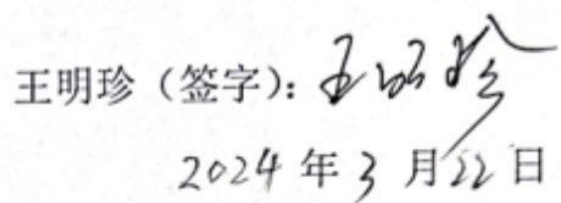 王明珍（签字）：王明珍
2024 年 3 月 22 日